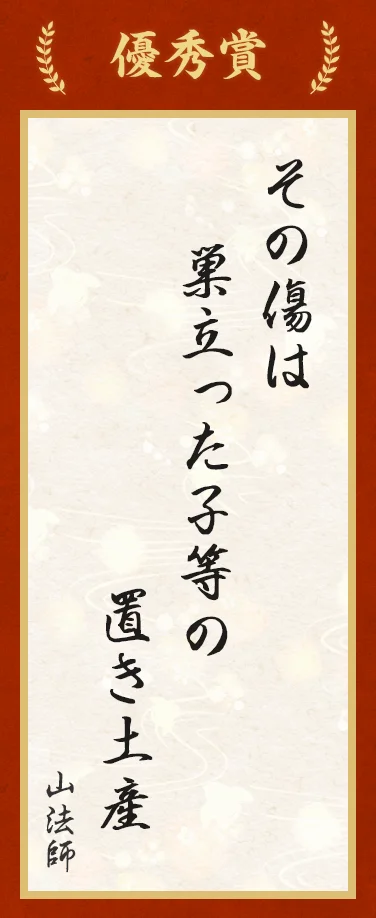 優秀賞
その傷は
巣立った子等の
置き土産
山法師